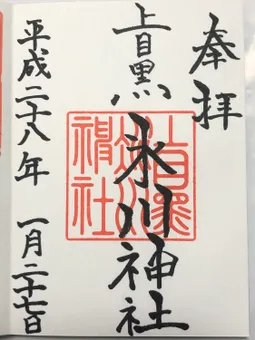 奉拝
上目黒
氷川神社
平成二十八年 一月二十七日
上目黒氷川神社